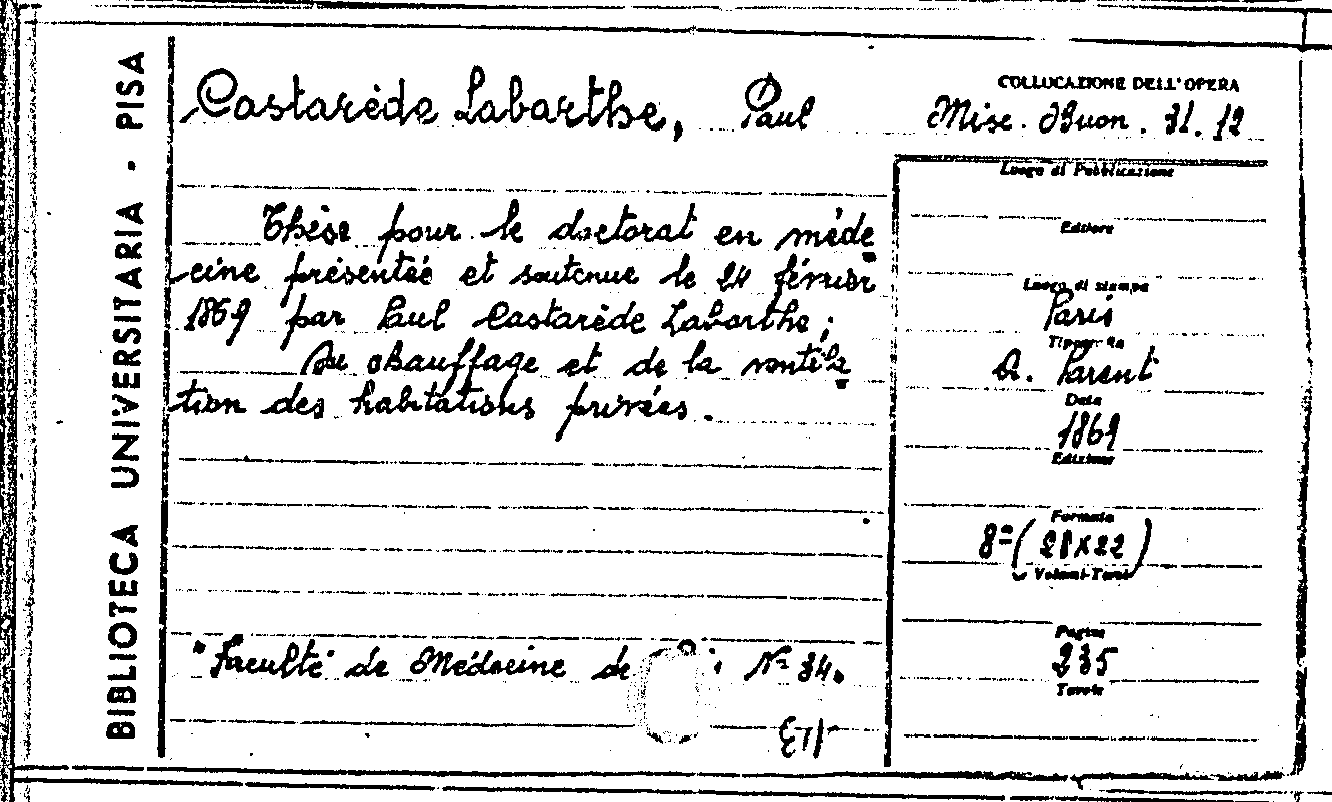 BIBLIOTECA UNIVERSITARIA - PISA
Castarède Labarthe, Paul
COLLOCAZIONE DELL'OPERA
Misc. Buon. 31. 12
Thèse pour le doctorat en méde=
cine présentée et soutenue le 24 février
1869 par Paul Castarède Labarthe;
Du chauffage et de la ventila=
tion des habitations privées.
"Faculté de Médecine de N° 34.
Luogo di Pubblicazione
Editore
Luogo di stampa
Paris
Tipografia
A. Parent
Data
1869
Edizione
Formato
8° (28x22)
Volumi-Tomi
Pagine
235
Tavole